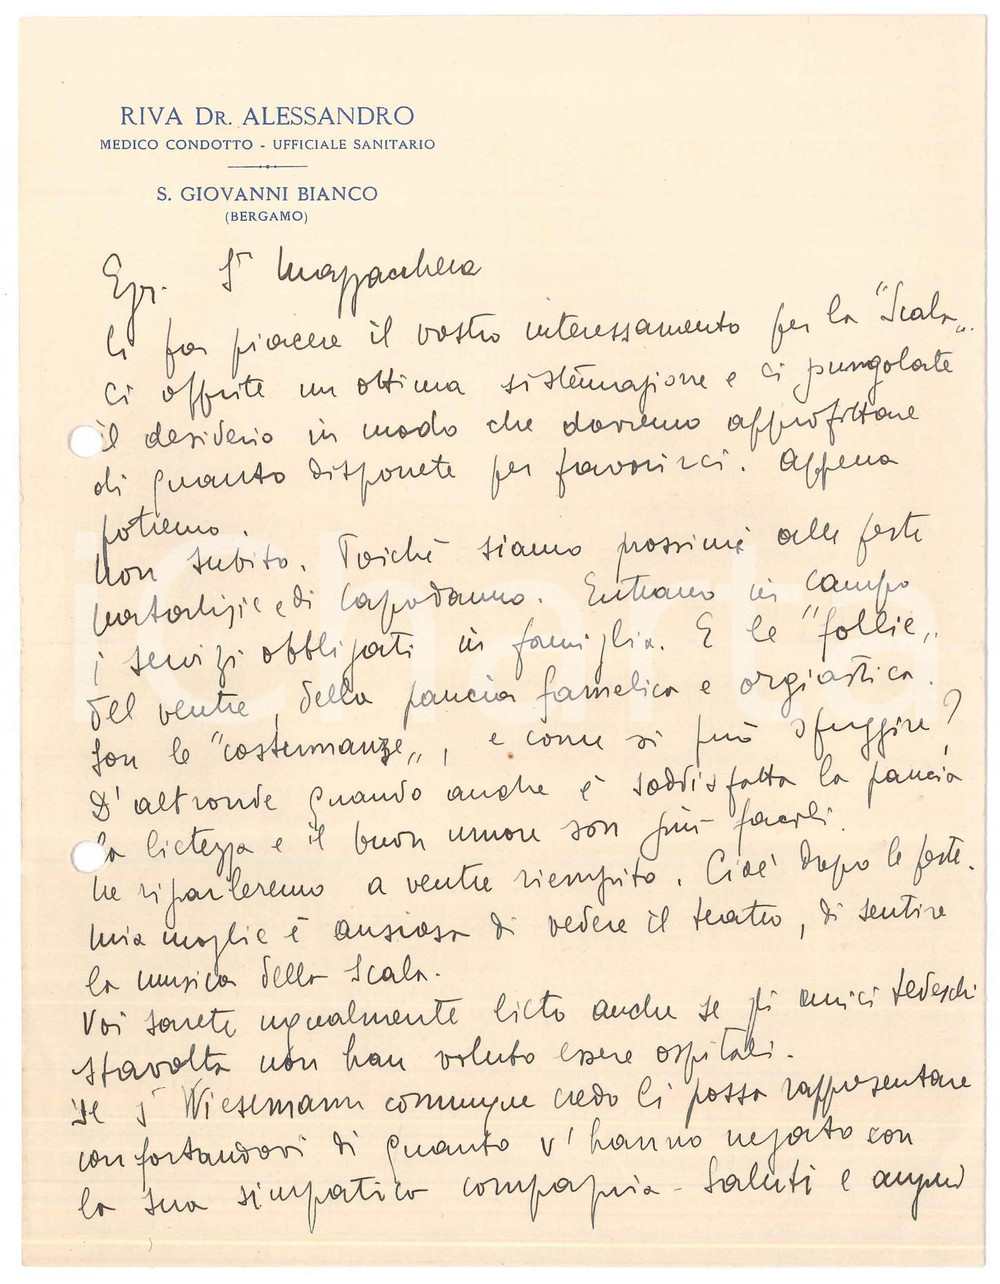 RIVA DR. ALESSANDRO
MEDICO CONDOTTO - UFFICIALE SANITARIO
S. GIOVANNI BIANCO
(BERGAMO)
Egr. Sr Mazzacchera
Ci fa piacere il vostro interessamento per la "Scala„.
Ci offrite un ottima sistemazione e ci pungolate
il desiderio in modo che dovremo approfittare
di quanto disponete per favorirci. Appena
potremo.
Non subito. Poichè siamo prossimi alle feste
natalizie e di Capodanno. Entrano in campo
i servizi obbligati in famiglia. E le "follie„
del ventre, della pancia famelica e orgiastica.
Son le "costumanze„, e come si può sfuggire?
D'altronde quando anche è soddisfatta la pancia
la lietezza e il buon umore son più facili.
Ne riparleremo a ventre riempito. Cioè dopo le feste.
Mia moglie è ansiosa di vedere il teatro, di sentire
la musica della Scala.
Voi sarete ugualmente lieto anche se gli amici tedeschi
stavolta non han voluto essere ospitali.
Il Sr Wiesemann comunque credo li possa rappresentare
confortandovi di quanto v'hanno negato con
la sua simpatica compagnia - Saluti e auguri
iCharta